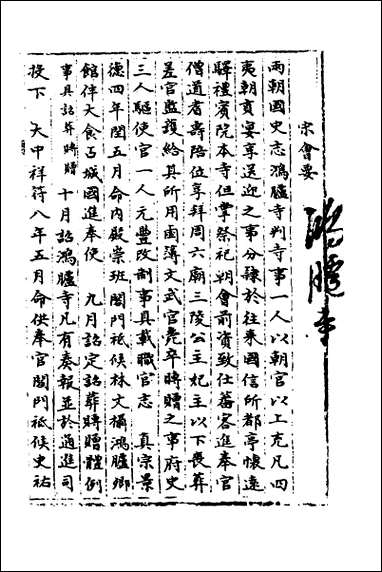 宋會要
鴻臚寺
兩朝國史志鴻臚寺判寺事一人以朝官以上充凡四
夷朝貢宴享送迎之事分隸於往來國信所都亭懷遠
驛禮賓院本寺但掌祭祀朝會前資致仕蕃客進奉官
僧道耆壽陪位享拜周六廟三陵公主妃主以下喪葬
差官監護給其所用鹵簿文武官薨卒賻贈之事府史
三人驅使官一人元豐改制事具載職官志 真宗景
德四年閏五月命內殿崇班閤門祗候林文攝鴻臚卿
館伴大食占城國進奉使 九月詔定詔葬賻贈體例
事具詔葬賻贈 十月詔鴻臚寺凡有奏報並於通進司
投下 大中祥符八年五月命供奉官閤門祗候史祐